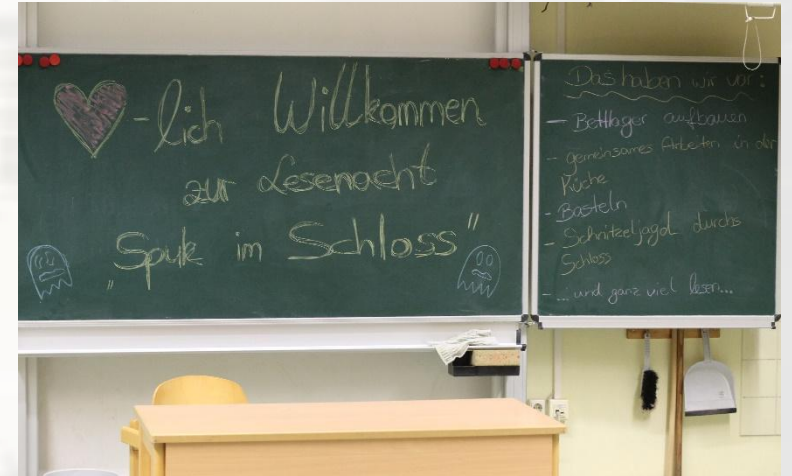 -lich Willkommen
zur Lesenacht
„Spuk im Schloss"
Das haben wir vor:
- Bettlager aufbauen
- gemeinsames Arbeiten in der
Küche
- Basteln
- Schnitzeljagd durchs
Schloss
- ... und ganz viel lesen...